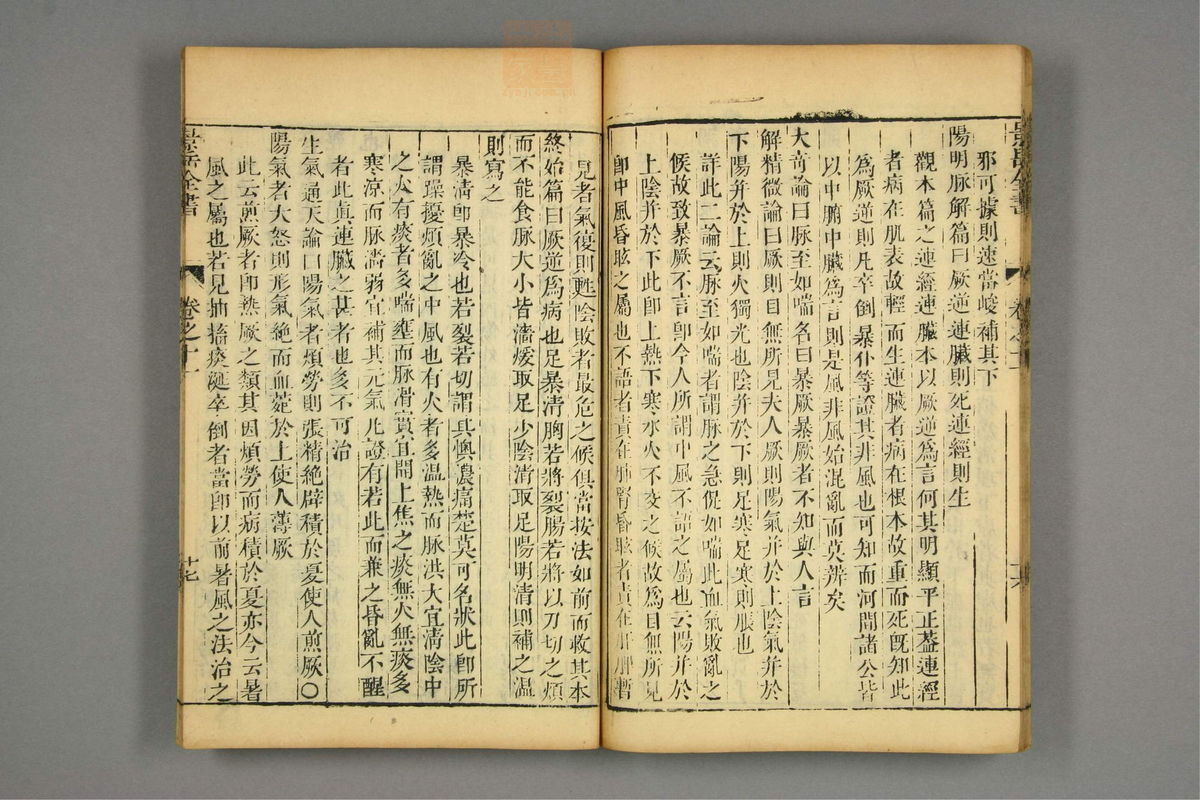 景岳全書
卷之十一
十六
邪可據則速當峻補其下
陽明脉解篇曰厥逆連臟則死連經則生
觀本篇之連經連臟本以厥逆爲言何其明顯平正葢連經
者病在肌表故輕而生連臟者病在根本故重而死旣知此
爲厥逆則凡卒倒暴仆等證其非風也可知而河間諸公皆
以中腑中臟爲言則是風非風始混亂而莫辨矣
大奇論曰脉至如喘名曰暴厥暴厥者不知與人言
解精微論曰厥則目無所見夫人厥則陽氣并於上陰氣并於
下陽并於上則火獨光也陰并於下則足寒足寒則脹也
詳此二論云脉至如喘者謂脉之急促如喘此血氣敗亂之
候故致暴厥不言卽今人所謂中風不語之屬也云陽并於
上陰并於下此卽上熱下寒水火不交之候故爲目無所見
卽中風昏眩之屬也不語者責在肺腎昏眩者責在肝脾暫
見者氣復則甦陰敗者最危之候俱當按法如前而救其本
終始篇曰厥逆爲病也足暴清胸若將裂腸若將以刀切之煩
而不能食脉大小皆濇煖取足少陰清取足陽明清則補之溫
則寫之
暴清卽暴冷也若裂若切謂其懊憹痛楚莫可名狀此卽所
謂躁擾煩亂之中風也有火者多溫熱而脉洪大宜清陰中
之火有痰者多喘壅而脉滑實宜開上焦之痰無火無痰多
寒涼而脉濇弱宜補其元氣凡證有若此而兼之昏亂不醒
者此真連臟之甚者也多不可治
生氣通天論曰陽氣者煩勞則張精絶辟積於憂使人煎厥○
陽氣者大怒則形氣絶而血菀於上使人薄厥
此云煎厥者卽熱厥之類其因煩勞而病積於夏亦今云暑
風之屬也若見抽搐痰涎卒倒者當卽以前暑風之法治之
景岳全書
卷之十一
十七